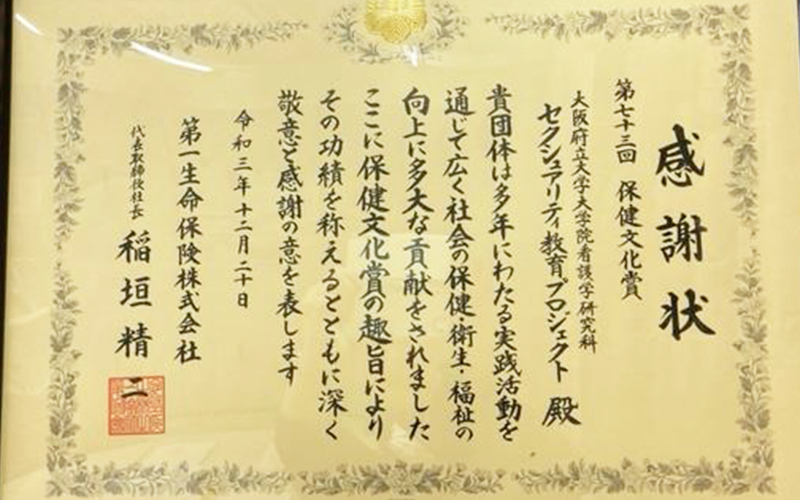 感謝状
第七十三回 保健文化賞
大阪府立大学大学院看護学研究科
セクシュアリティ教育プロジェクト 殿
貴団体は多年にわたる実践活動を
通じて広く社会の保健衛生・福祉の
向上に多大な貢献をされました
ここに保健文化賞の趣旨により
その功績を称えるとともに深く
敬意と感謝の意を表します
令和三年十二月二十日
第一生命保険株式会社
代表取締役社長 稲垣精二